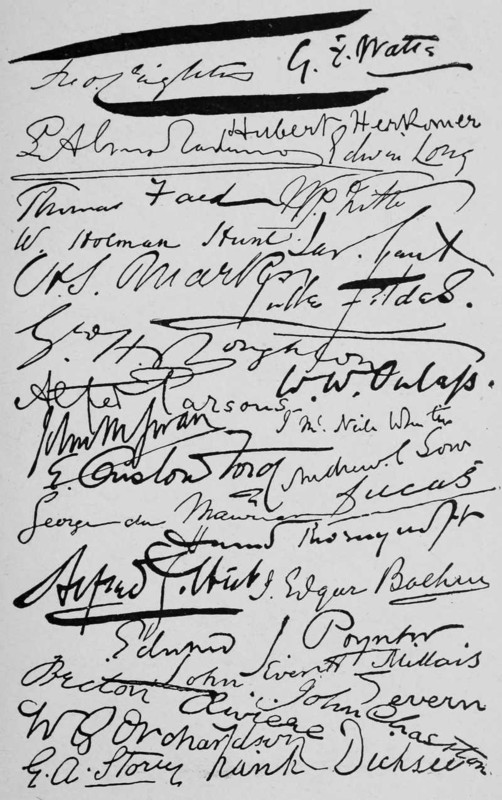 Fred Leighton G. F. Watts
Hubert Herkomer
L Alma Tadema Edwin Long
Thomas Faed W. P. Frith
W. Holman Hunt.
H. S. Marks
Luke Fildes.
Geo H Boughton
Alfred Parsons W. W. Ouless.
John M Swan J Mc. Neill Whistler
E. Onslow Ford Andrew C Gow
George du Maurier Lucas
Hamo Thornycroft
Alfred Gilbert J. Edgar Boehm
Edward J Poynter
John Everett Millais
Briton Riviere John Severn
W Q Orchardson
G. A. Storey Frank Dicksee